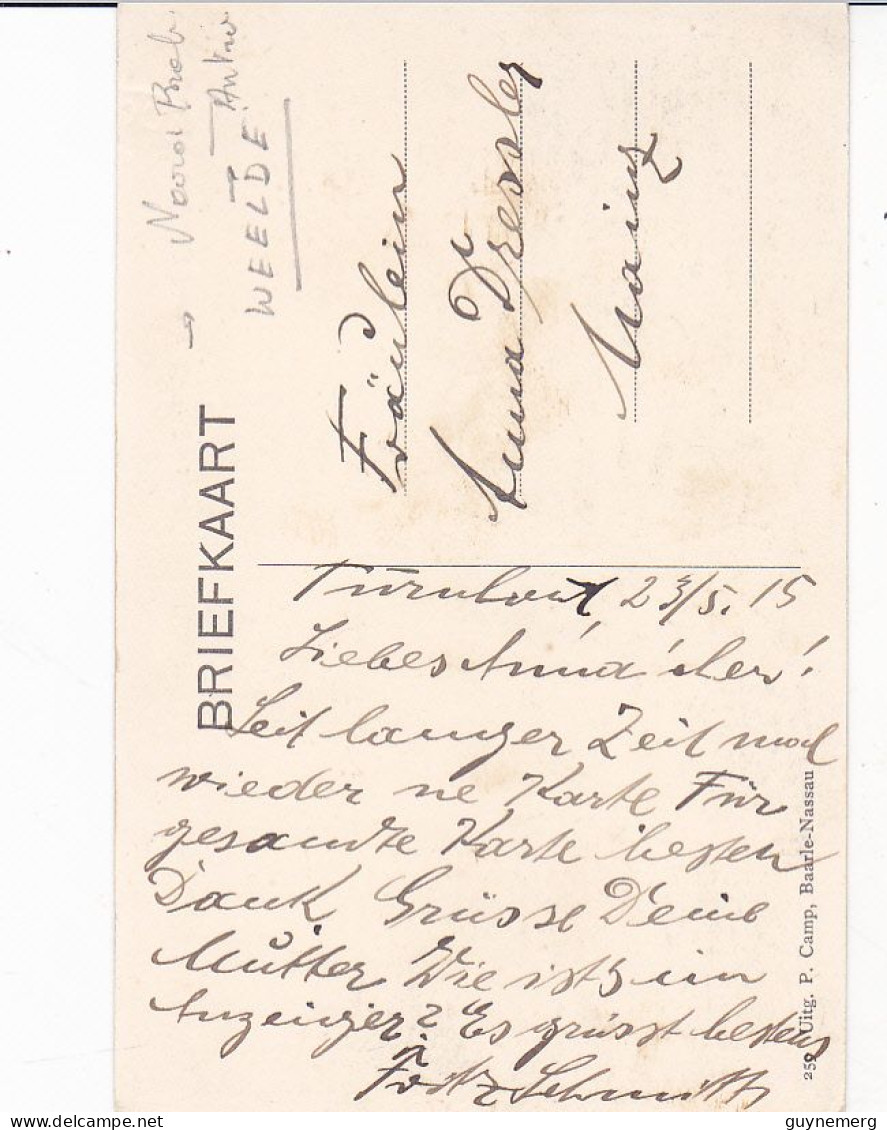 → Noord Brab.
Antw
WEELDE
BRIEFKAART
Fräulein
Anna Dressler
Mainz
Turnhout, 23/5. 15
Liebes Ännachen!
Seit langer Zeit mal
wieder ne Karte Für
gesandte Karte besten
Dank Grüsse Deine
Mutter Wie ist's im
Anzeiger? Es grüsst bestens
Fritz Schmitt
259 Uitg. P. Camp, Baarle-Nassau
delcampe.net
guynemerg